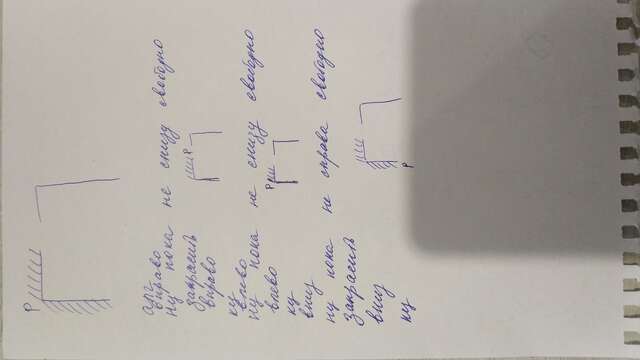 Р
алг
вправо
нц пока не снизу свободно
закрасить
Р
вправо
кц
влево
нц пока не снизу свободно
влево
Р
кц
вниз
нц пока не справа свободно
закрасить
вниз
кц
Р